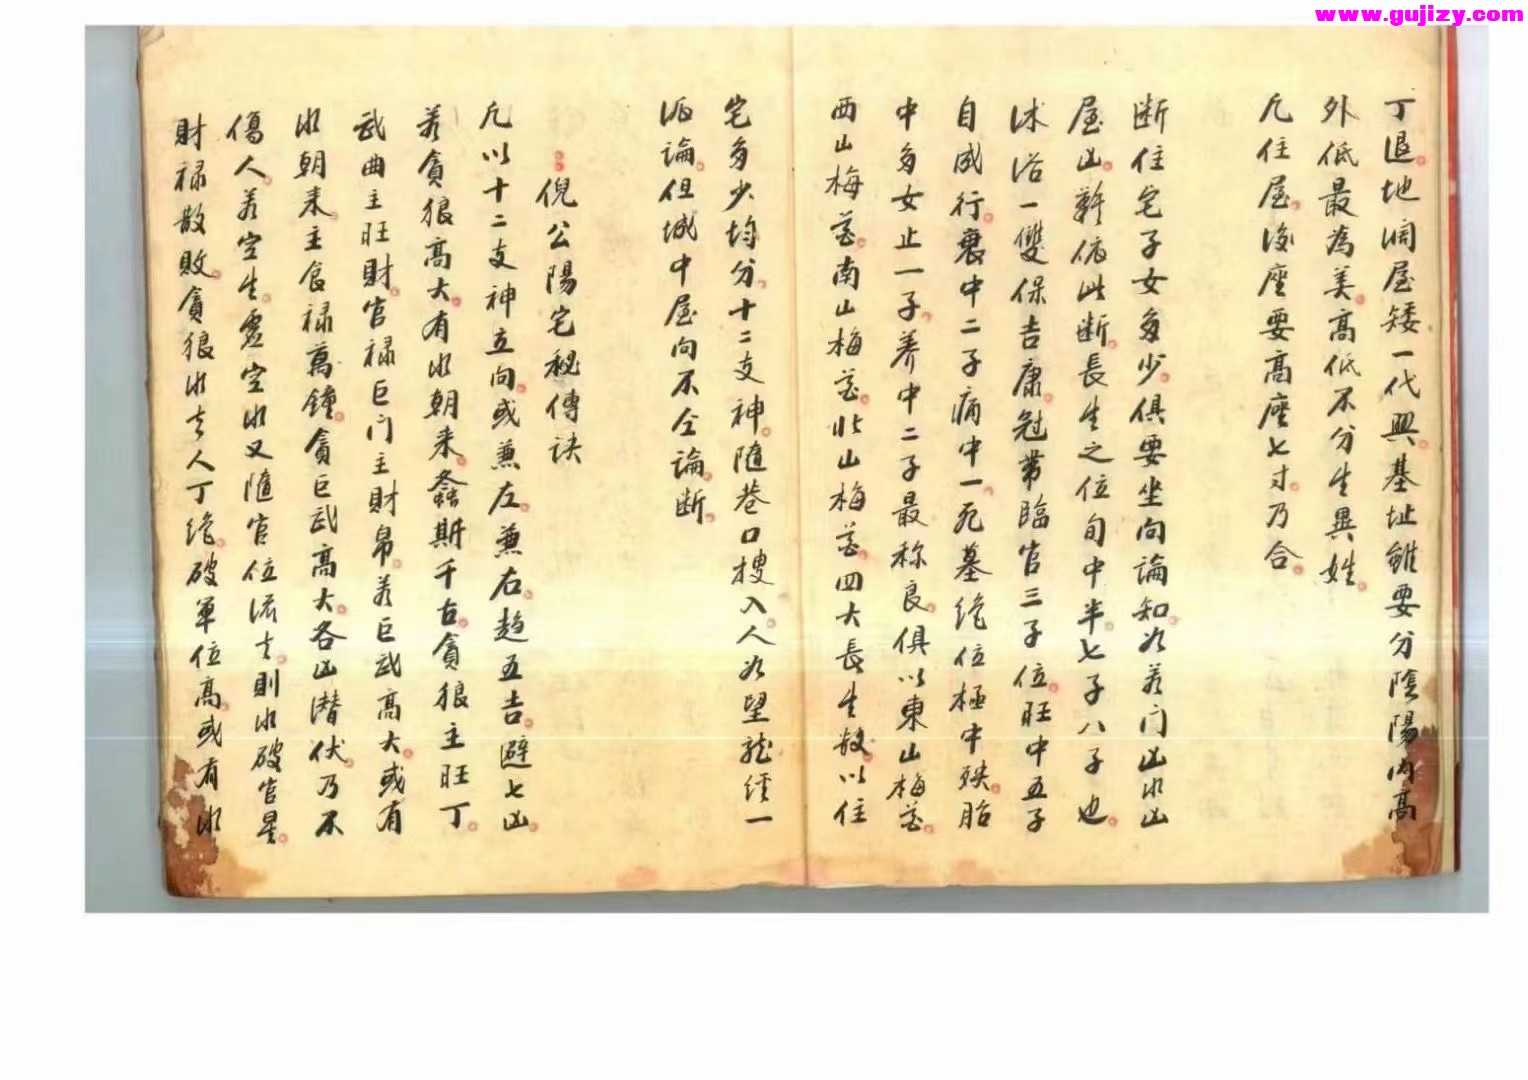 www.gujizy.com
丁退地濶屋矮一代興基址雖要分陰陽内高
外低最為美高低不分生異姓
凡住屋後座要高座七寸乃合
断住宅子女多少俱要坐向論知次若门凶水凶
屋凶難依此断長生之位旬中半七子八子也
沐浴一雙保吉康冠帯臨官三子位旺中五子
自成行衰中二子病中一死墓絶位極中殃胎
中多女止一子养中二子最称良俱以東山梅花
西山梅花南山梅花北山梅花四大長生敖以住
宅多少均分十二支神随巷口搜入人次望龍経一
派論但城中屋向不仝論断
倪公陽宅秘傳訣
凡以十二支神立向或兼左兼右趋五吉避七凶
若貪狼高大有水朝来螽斯千古貪狼主旺丁
武曲主旺財官禄巨门主財帛若巨武高大或有
水朝来主食禄萬鐘貪巨武高大各凶潜伏乃不
傷人若空生壼空水又隨官位流去則水破官星
財禄散敗貪狼水去人丁絶破军位高或有水